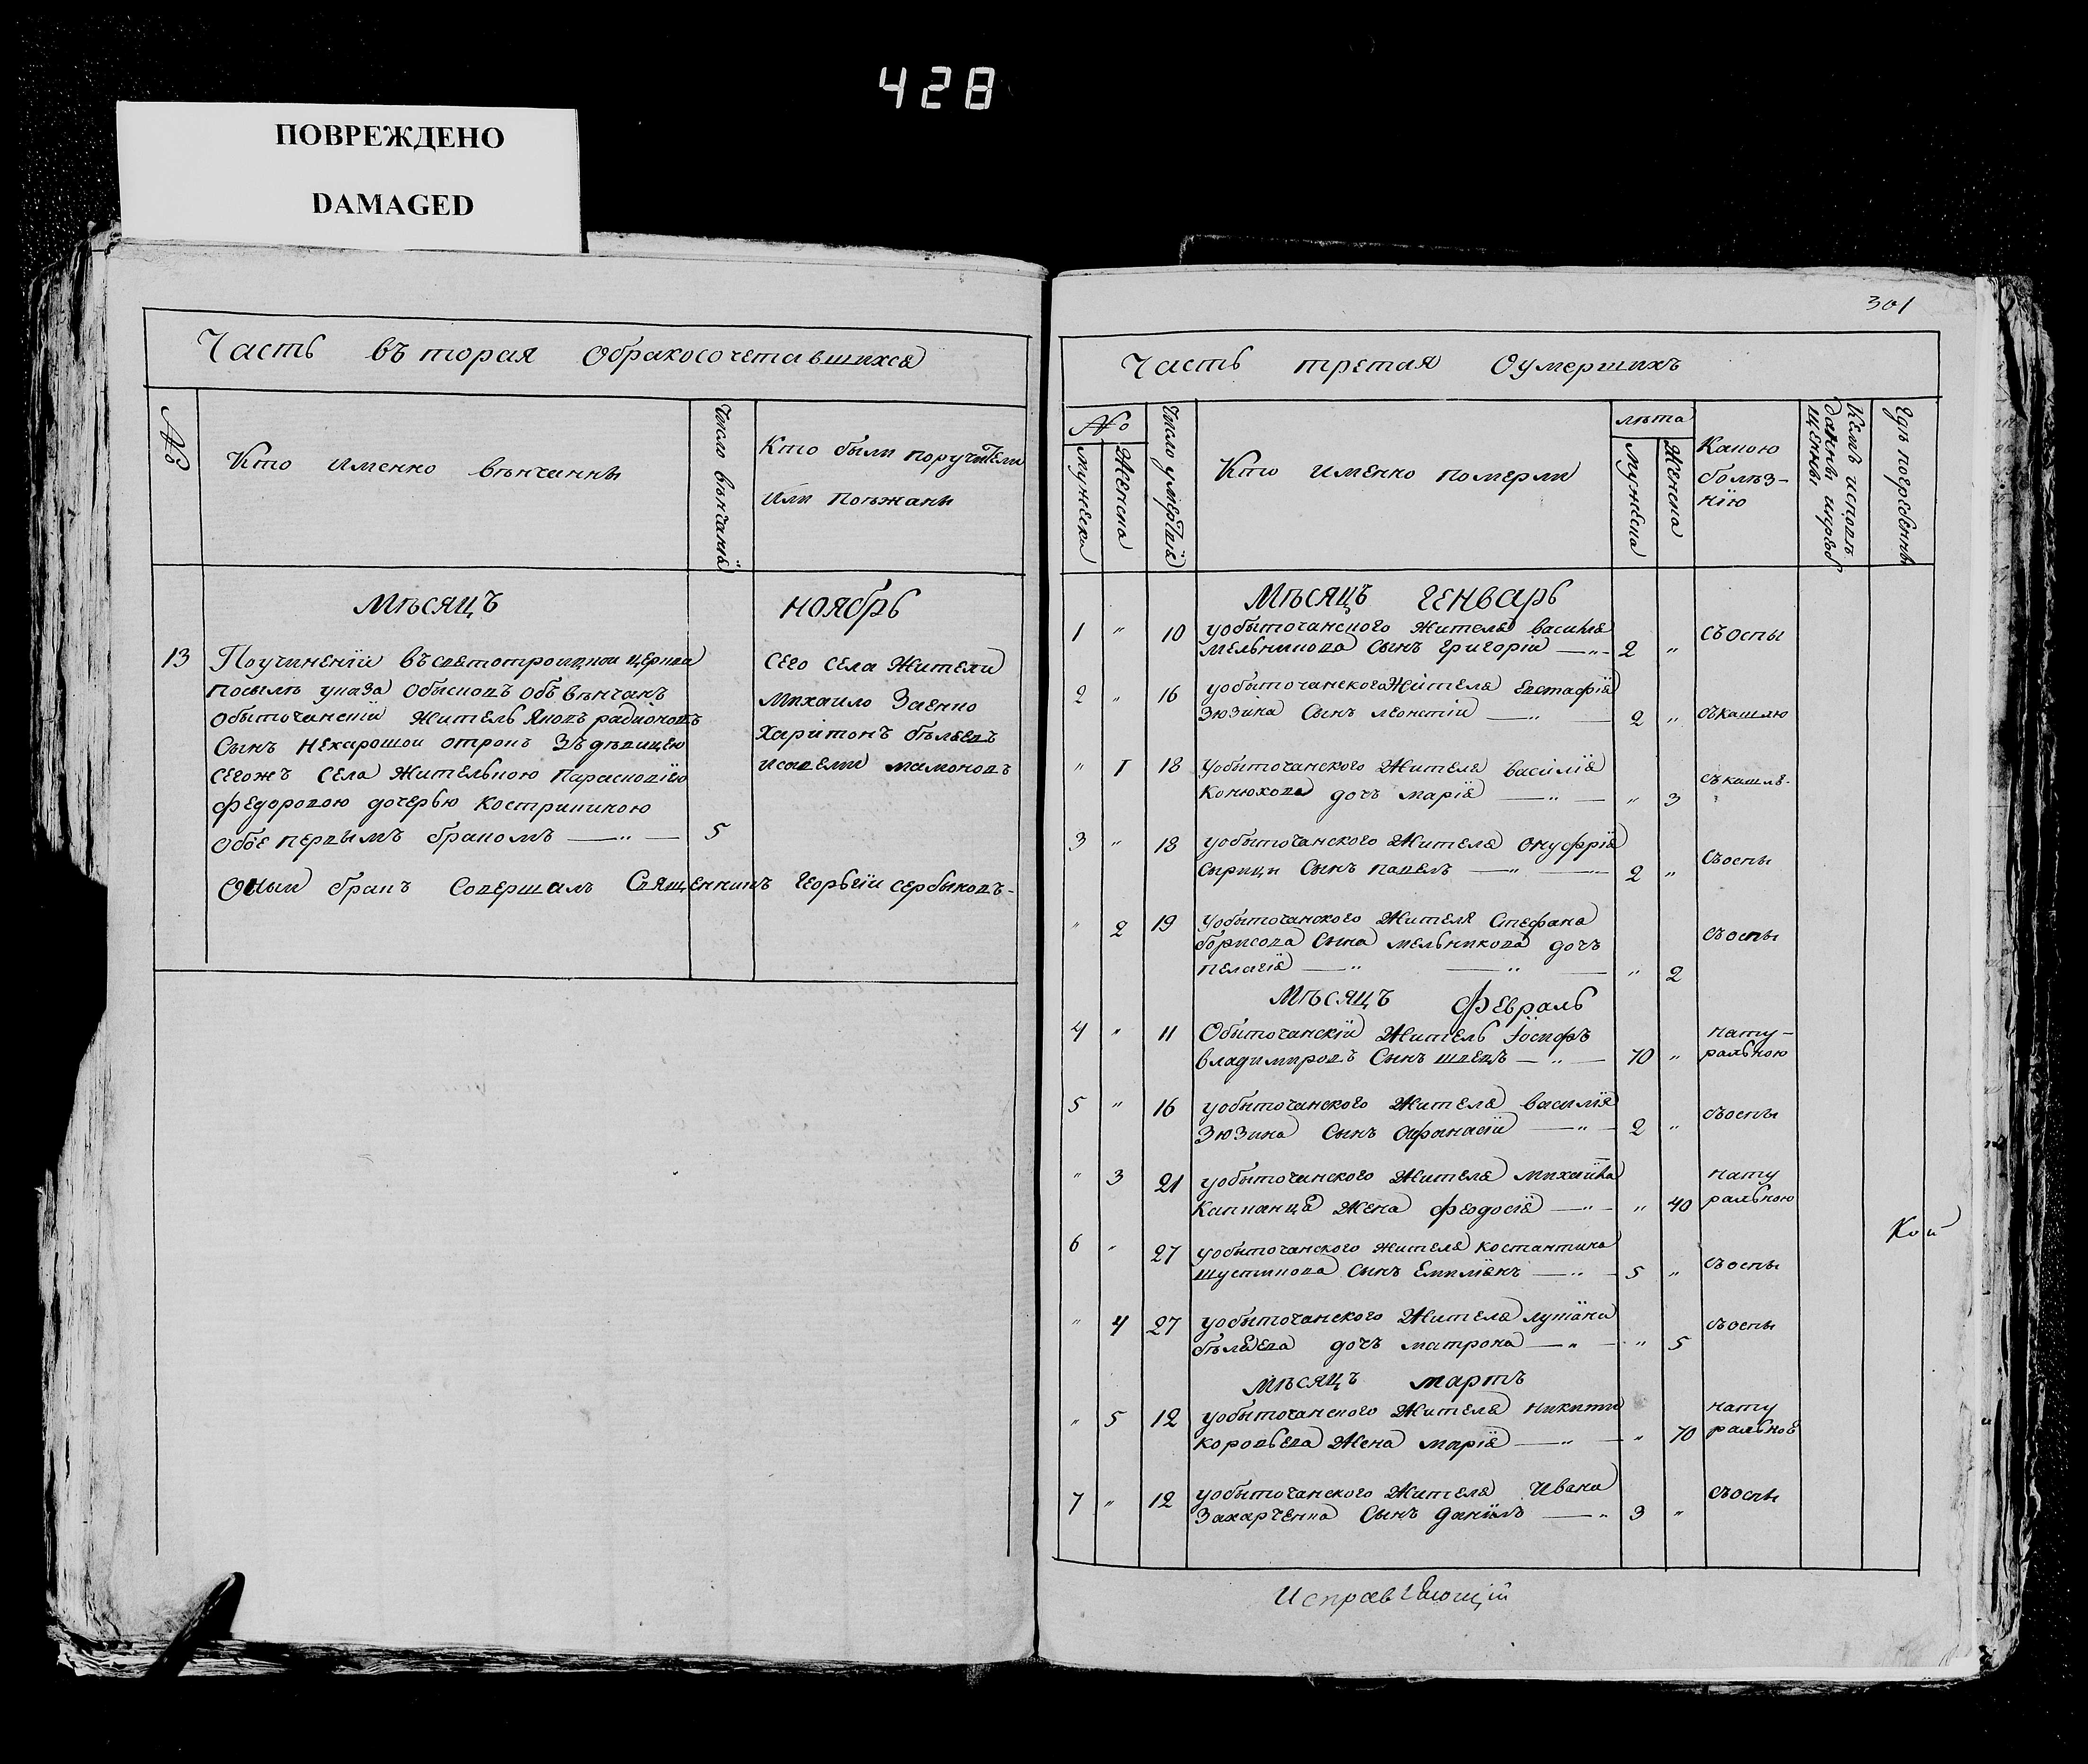 428
ПОВРЕЖДЕНО
DAMAGED
Часть въторая Обракосочетавшихся
№
Кто именно вѣнчанны
Число вѣнчанїя
Кто были поручители
или поѣжаны
Мѣсяцъ ноябрь
13
Поучиненїи въсвятотроицкои церкви
посилѣ указа обысковъ обвѣнчанъ
обыточанскїи житель Яковъ радионовъ
Сынъ Нехарошои отрокъ Зъ дѣвицею
сегожъ села жителькою Параскодїею
федоровою дочерью костриникою
обое первымъ бракомъ — " — 5
Сего села жители
Михаило Заенко
Харитонъ бѣляевъ
исавели мамоновъ
Оныи бракъ Совершалъ Священникъ Георьгїи сербыновъ-
301
Часть третая Оумершихъ
№
мужеска
Женска
Число умертвїя
Кто именно померли
лѣта
мужеска
Женска
Какою
болѣз-
нїю
Кемъ исповѣ
данны иприоб
щенны
Гдѣ погребенны
Мѣсяцъ генварь
1 " 10 уобыточанского жителя василïя
мельникова Сынъ григорїи — " — 2 " съоспы
2 " 16 уобыточанского жителя евстафїя
Зюзина Сынъ леонтїи — " — 2 " съкашлю
" 1 18 уобыточанского жителя василїя
Конюхова дочъ марїя — " — " 3 съкашлѣ-
3 " 18 уобыточанского жителя онуфрїя
Сырици Сынъ павелъ — " — 2 " съоспы
" 2 19 уобыточанского жителя Стефана
борисова Сына мельникова дочъ
пелагїя — " — " — " 2 съоспы
Мѣсяцъ февраль
4 " 11 Обыточанскїи житель Їосифъ
владимировъ Сынъ швецъ — " — 70 " нату-
ральною
5 " 16 уобыточанского жителя василїя
Зюзина Сынъ Афанасїи — " — 2 " съоспы
" 3 21 уобыточанского жителя михаила
Капканца Жена феодосїя — " — " 40 нату
ральною
6 " 27 уобыточанского жителя костантина
шустикова Сынъ Емилїянъ — " — 5 " съоспы
" 4 27 уобыточанского жителя лукїяна
бѣляева дочъ матрона — " — " 5 съоспы
Мѣсяцъ мартъ
" 5 12 уобыточанского жителя никити
коровьева Жена марїя — " — " 70 нату
ральною
7 " 12 уобыточанского жителя Ивана
Захарченка Сынъ данїилъ — " 3 " съоспы
Кой
Исправляющій